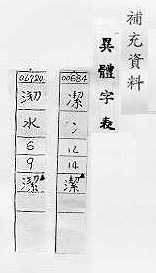 補充資料
異體字表
00684
潔
氵
12
14
潔
02720
水
6
9
潔